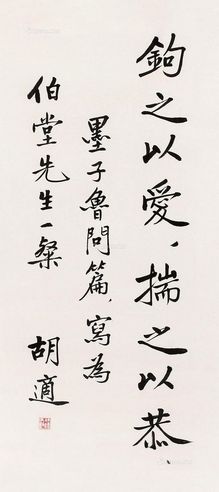 鉤之以愛，揣之以恭、
墨子魯問篇，寫為
伯堂先生一粲
胡適